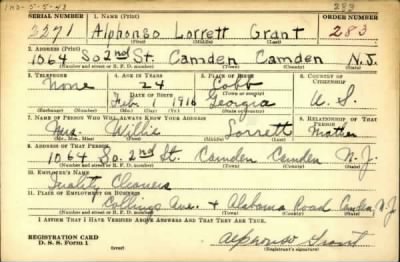 IND-5-5-42 283
SERIAL NUMBER 1. NAME (Print) ORDER NUMBER
2271 Alphonso Lorrett Grant 283
(First) (Middle) (Last)
2. ADDRESS (Print)
1064 So 2nd St. Camden Camden N.J.
(Number and street or R. F. D. number) (Town) (County) (State)
3. TELEPHONE 4. AGE IN YEARS 5. PLACE OF BIRTH 6. COUNTRY OF CITIZENSHIP
None 24 Cobb
DATE OF BIRTH (Town or county)
Feb 1 1916 Georgia U. S.
(Exchange) (Number) (Mo.) (Day) (Yr.) (State or country)
7. NAME OF PERSON WHO WILL ALWAYS KNOW YOUR ADDRESS 8. RELATIONSHIP OF THAT PERSON
Mrs. Willie Lorrett Mother
(Mr., Mrs., Miss) (First) (Middle) (Last)
9. ADDRESS OF THAT PERSON
1064 So. 2nd St. Camden Camden N. J.
(Number and street or R. F. D. number) (Town) (County) (State)
10. EMPLOYER'S NAME
Quality Cleaners
11. PLACE OF EMPLOYMENT OR BUSINESS
Collings Ave. & Alabama Road Camden, N.J.
(Number and street or R. F. D. number) (Town) (County) (State)
I AFFIRM THAT I HAVE VERIFIED ABOVE ANSWERS AND THAT THEY ARE TRUE.
REGISTRATION CARD
D. S. S. Form 1 (over) Alphonso Grant
(Registrant's signature)